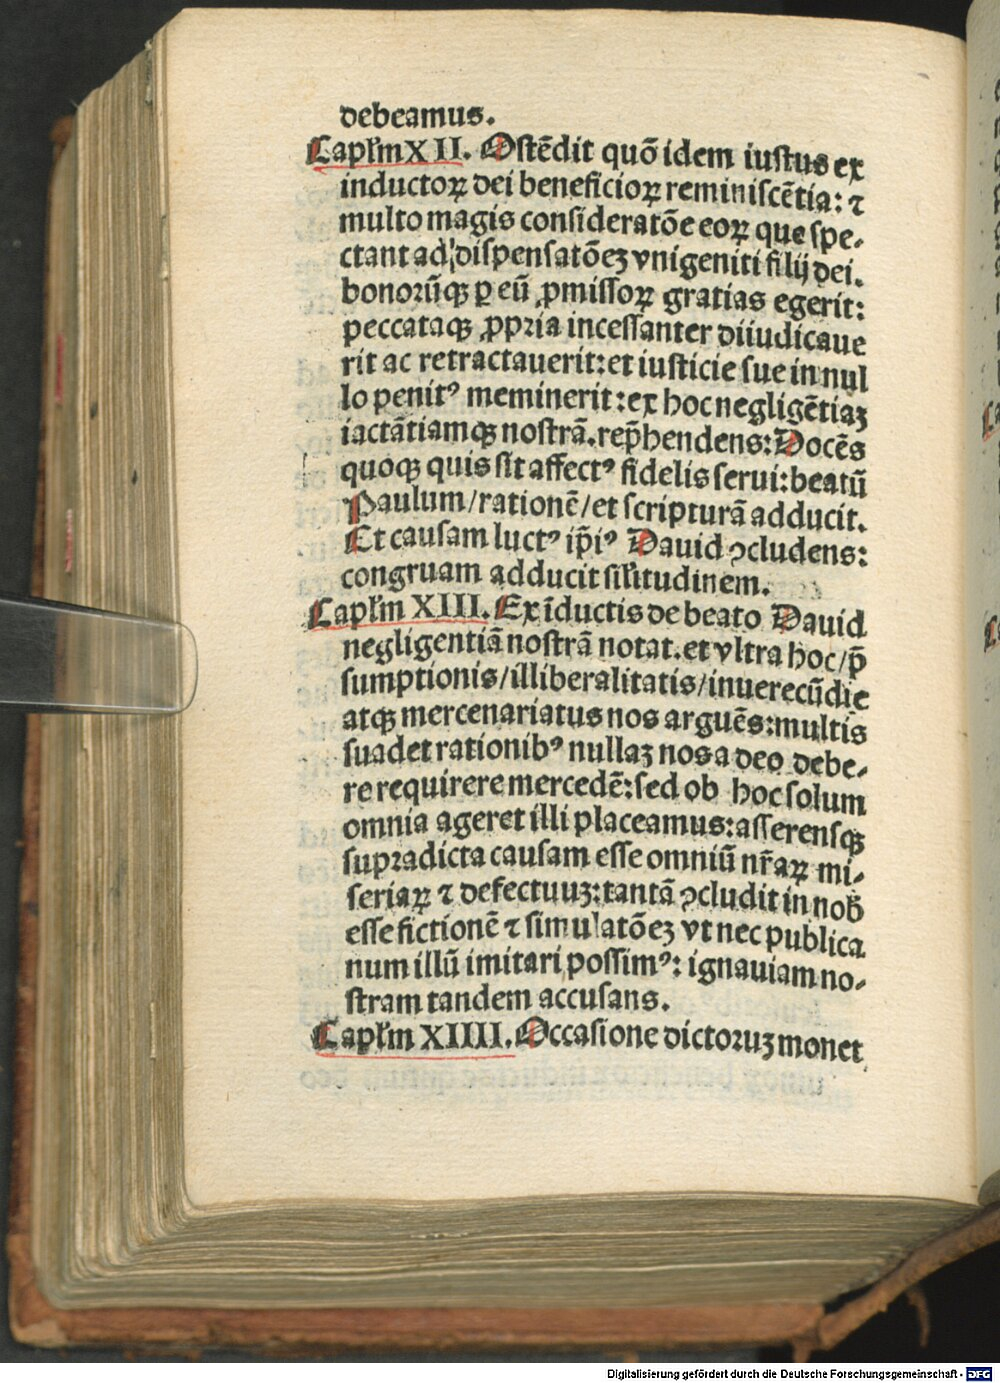 debeamus.
Capłm XII. Ostēdit quō idem iustus ex
inductoꝝ dei beneficioꝝ reminiscētia: ⁊
multo magis consideratōe eoꝝ que spe-
ctant ad dispensatōeꝫ vnigeniti filij dei.
bonorūqꝫ ꝑ eū ꝓmissoꝝ gratias egerit:
peccataqꝫ ꝓpria incessanter diiudicaue
rit ac retractauerit: et iusticie sue in nul
lo penitꝰ meminerit: ex hoc negligētiaꝫ
iactātiamqꝫ nostrā. rep̄hendens: Docēs
quoqꝫ quis sit affectꝰ fidelis serui: beatū
Paulum/rationē/et scripturā adducit.
Et causam luctꝰ ip̄iꝰ Dauid ↄcludens:
congruam adducit siłitudinem.
Capłm XIII. Ex īductis de beato Dauid
negligentiā nostrā notat. et vltra hoc/p̄
sumptionis/illiberalitatis/inuerecūdie
atqꝫ mercenariatus nos arguēs: multis
suadet rationibꝰ nullaꝫ nos a deo debe-
re requirere mercedē: sed ob hoc solum
omnia ageret illi placeamus: asserensqꝫ
supradicta causam esse omniū nr̄aꝝ mi-
seriaꝝ ⁊ defectuuꝫ: tantā ↄcludit in nob̄
esse fictionē ⁊ simulatōeꝫ vt nec publica
num illū imitari possimꝰ: ignauiam no-
stram tandem accusans.
Capłm XIIII. Occasione dictoruꝫ monet
Digitalisierung gefördert durch die Deutsche Forschungsgemeinschaft - DFG